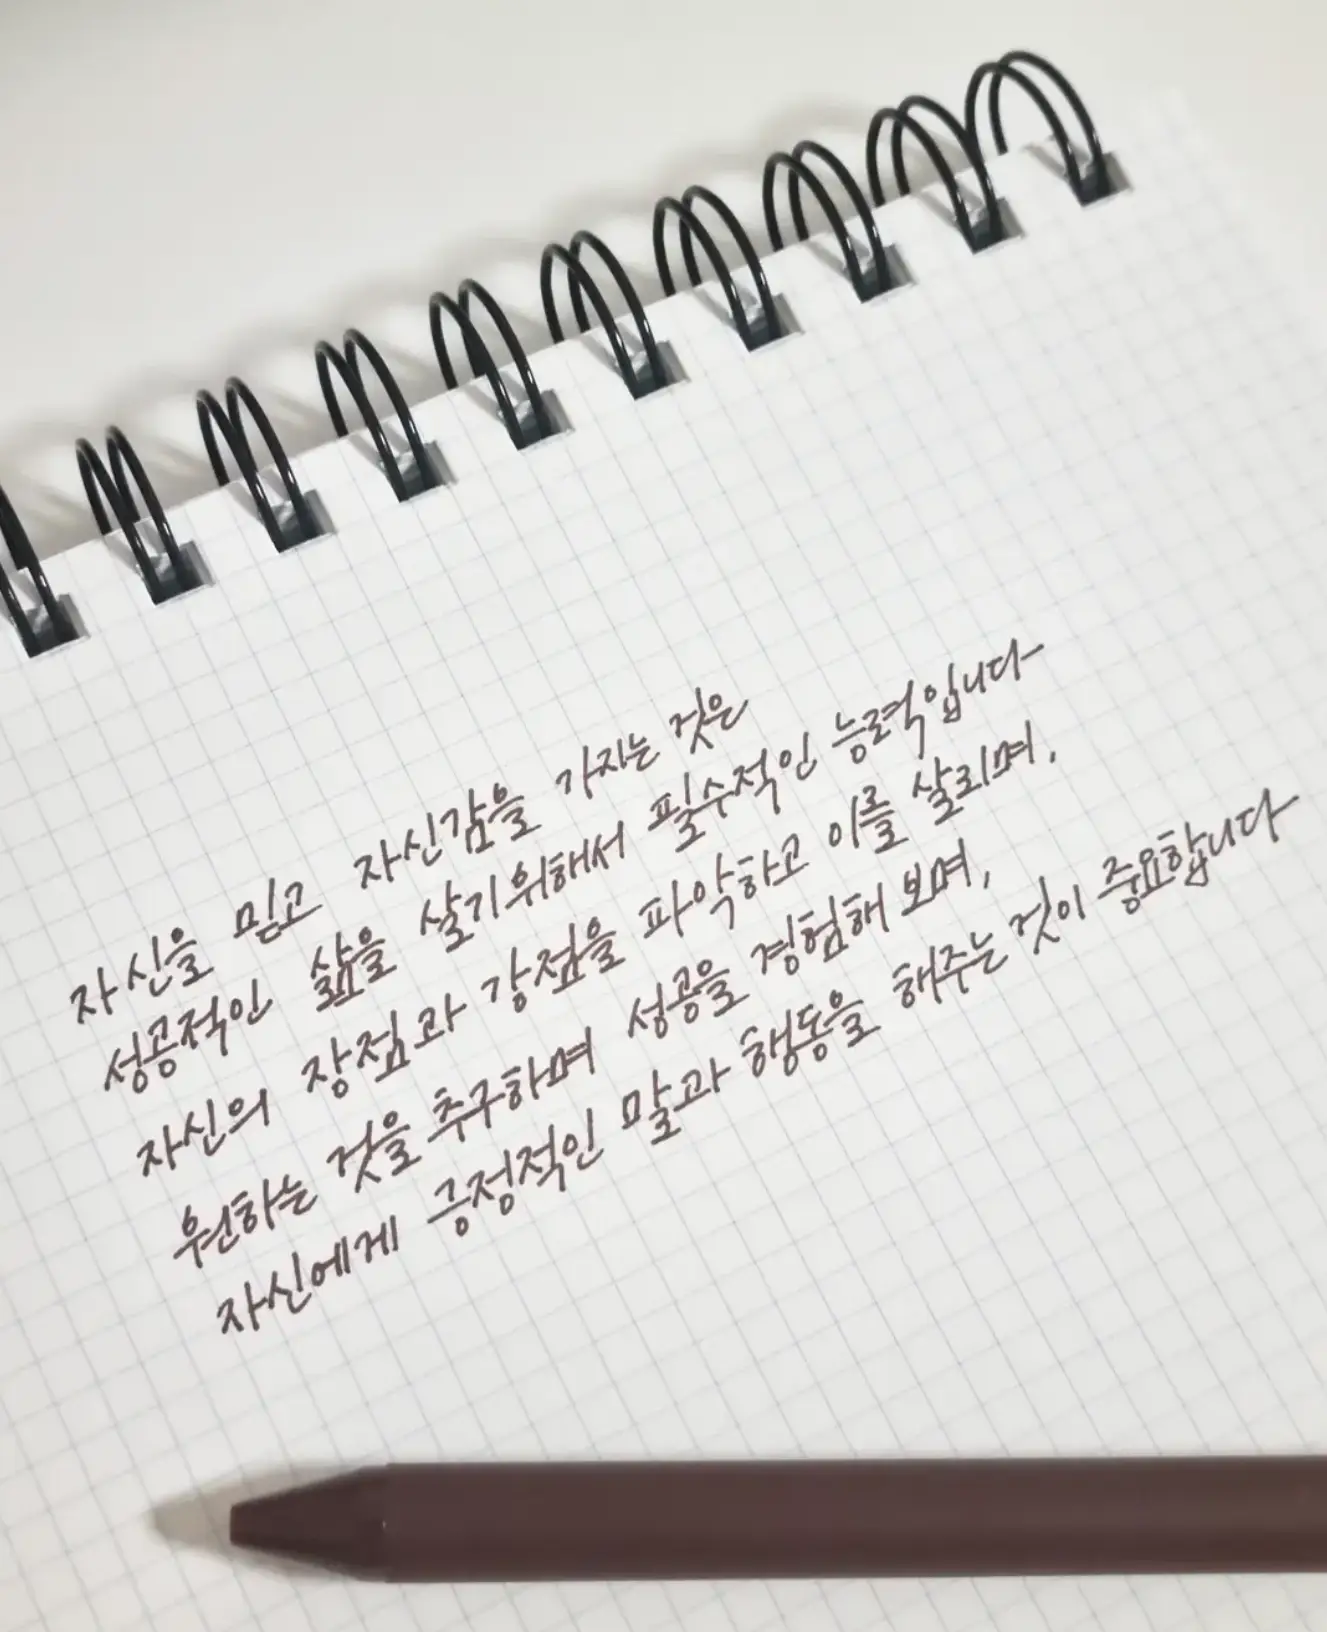 자신을 믿고 자신감을 가지는 것은
성공적인 삶을 살기위해서 필수적인 능력입니다
자신의 장점과 강점을 파악하고 이를 살리며,
원하는 것을 추구하며 성공을 경험해 보며,
자신에게 긍정적인 말과 행동을 해주는 것이 중요합니다